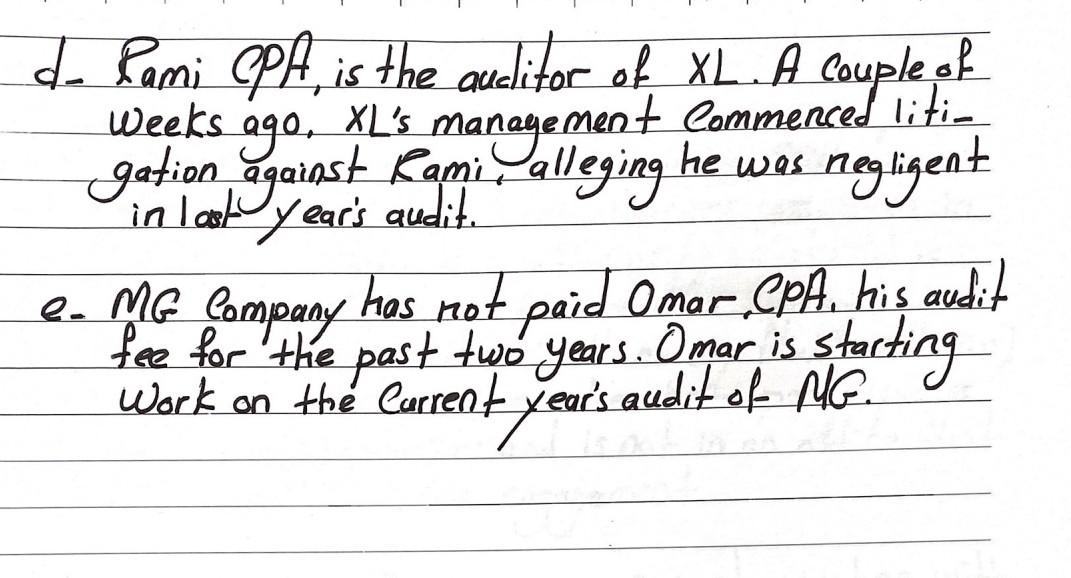 d- Rami CPA, is the auditor of XL. A Couple of
weeks ago, XL's management Commenced liti-
gation against Rami, alleging he was negligent
in last year's audit.
e- MG Company has not paid Omar, CPA, his audit
fee for the past two years. Omar is starting
Work on the Current year's audit of MG.